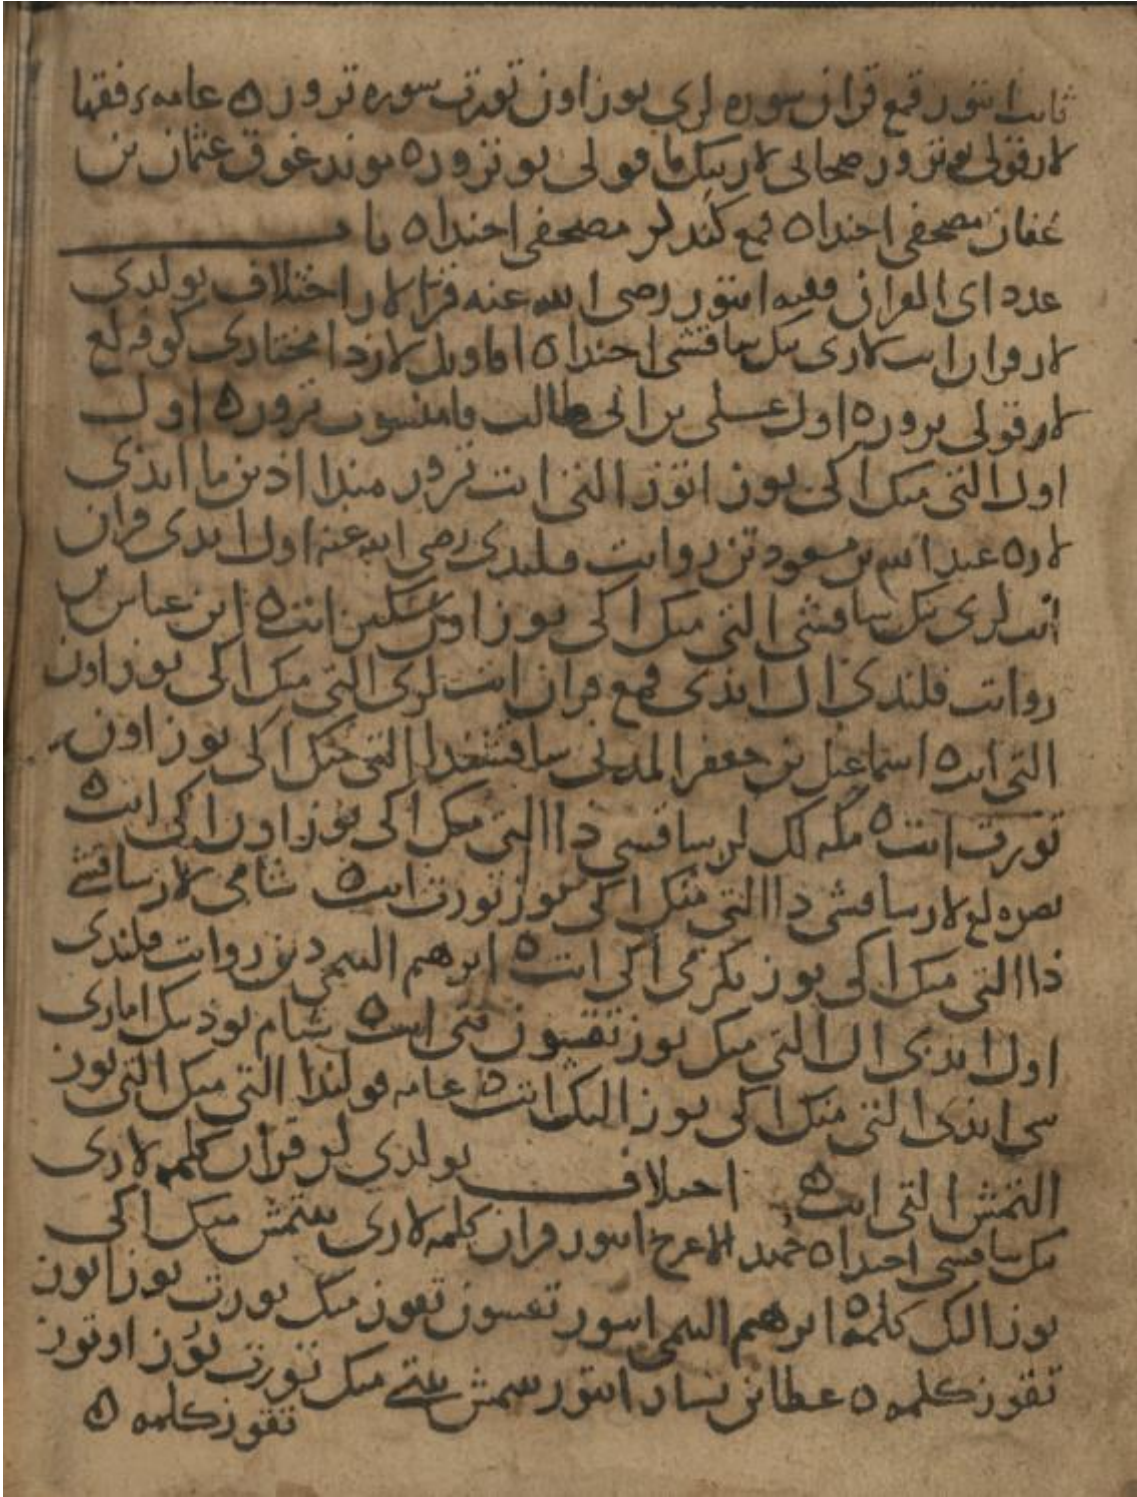 ثابت ایتور قمع قران سوره لری یوز اون تورت سوره ترور ٥ عامه فقها
لار قولی بو ترور صحابی لار نیک ما قولی بو ترور ٥ بوند غوق عثمان بن
عفان مصحفی اخندا ٥ قمع کندلر مصحفی اخندا ٥ باب
عدد ای القران فقیه ایتور رضی الله عنه قرّا لار اختلاف بولدی
لار قران ایت لاری نیک ساقشی اخندا ٥ اما اول لاردا مختاری کوفه لغ
لار قولی ترور ٥ اول علی بن ابی طالب قا منسوب ترور ٥ اول
اول التی مینک اکی یوز اتوز التی ایت ترور مندا اذین ما ایدی
لار ٥ عبد الله بن مسعود تن روایت قلندی رضی الله عنه اول ایدی قران
ایت لری نیک ساقشی التی مینک اکی یوز اون سکیز ایت ٥ ابن عباس تن
روایت قلندی ال ایدی قمع قران ایت لری التی مینک اکی یوز اون
التی ایت ٥ اسماعیل بن جعفر المدنی ساقشندا التی مینک اکی یوز اون
تورت ایت ٥ مکه لک لر ساقشی دا التی مینک اکی یوز اون اکی ایت ٥
بصره لغ لار ساقشی دا التی مینک اکی یوز تورت ایت ٥ شامی لار ساقشی
دا التی مینک اکی یوز یکرمی اکی ایت ٥ ابرهیم التیمی دین روایت قلندی
اول ایدی ال التی مینک یوز تقسون یتی ایت ٥ شام بود نیک اماری
سی ایدی التی مینک اکی یوز الیک ایت ٥ عامه قولندا التی مینک التی یوز
التمش التی ایت ٥ اختلاف بولدی لر قران کلمه لاری
نیک ساقشی اخندا ٥ حمید الاعرج ایتور قران کلمه لاری یتمش مینک اکی
یوز الیک کلمه ٥ ابرهیم التیمی ایتور تقسون تقوز مینک تورت یوز اتوز
تقوز کلمه ٥ عطا بن یسار ایتور یتمش یتی مینک تورت یوز اوتوز
تقوز کلمه ٥